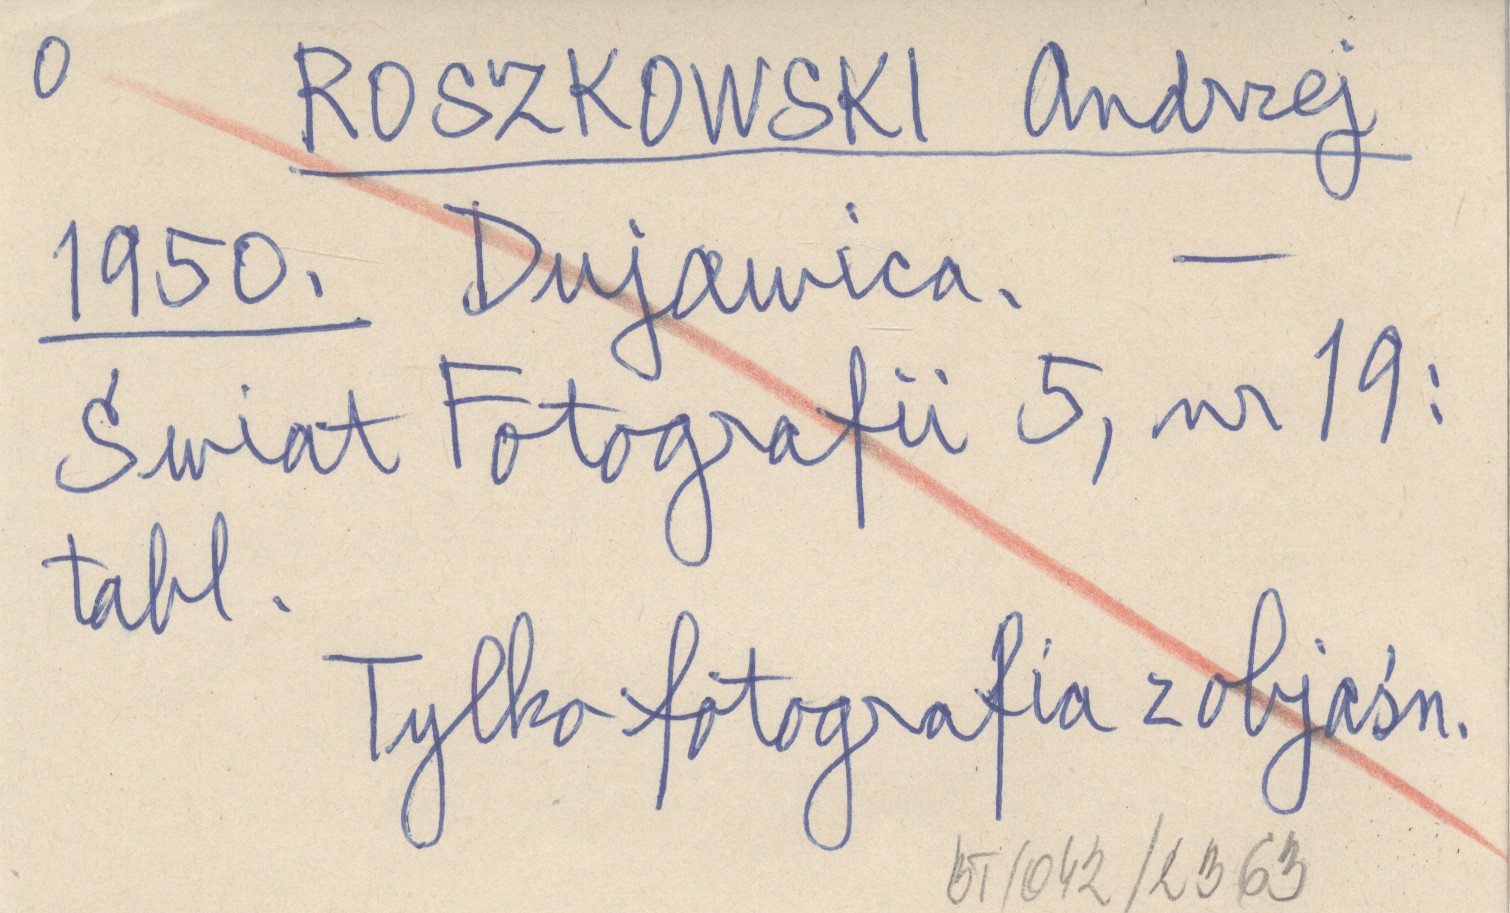 O ROSZKOWSKI Andrzej
1950. Dujawica. —
Świat Fotografii 5, nr 19:
tabl.
Tylko fotografia z objaśn.
BT/042/2363